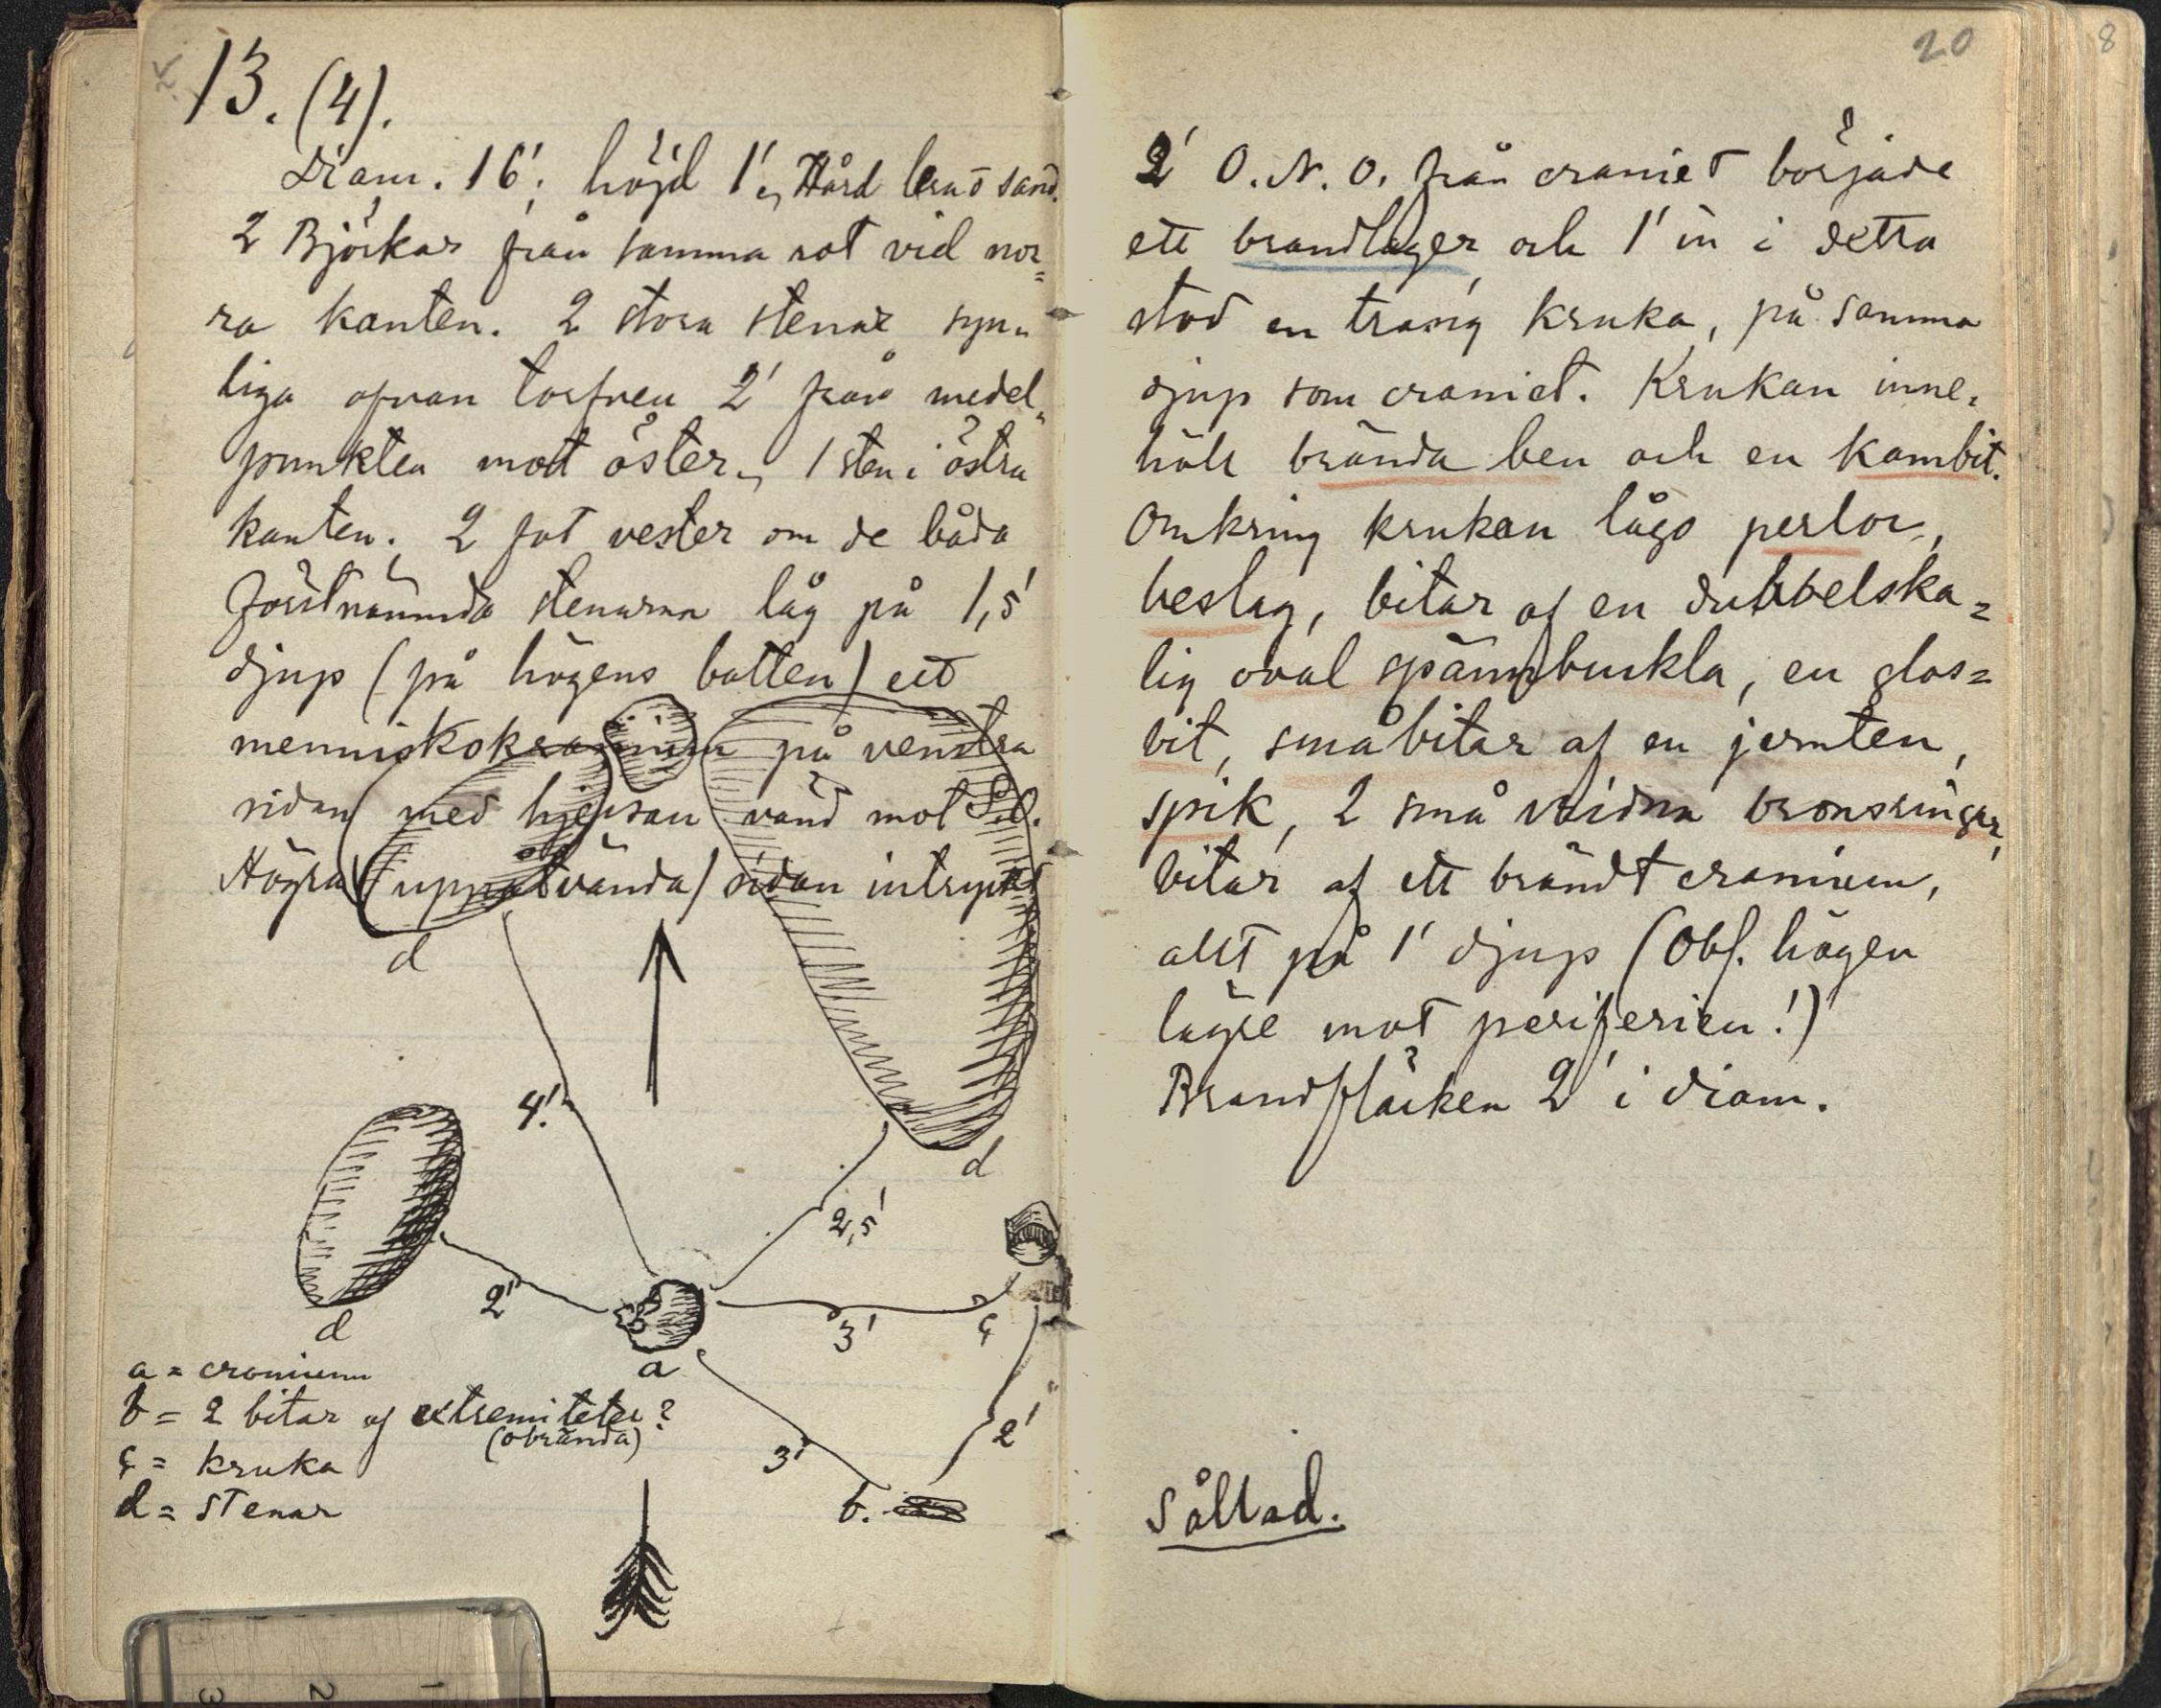 13. (4).
Diam. 16', höjd 1'. Hård brun sand.
2 Björkar från samma rot vid nor=
ra kanten. 2 stora stenar syn=
liga ofvan torfven 2' från medel=
punkten mot öster, 1 sten i östra
kanten. 2 fot vester om de båda
förstnämnda stenarna låg på 1,5'
djup (på högens botten) ett
menniskokranium på venstra
sidan med hjessan vänd mot S.O.
Högra (uppåtvända) sidan intryckt
d
4'.
d
2,5'
2'
d
3'
ç
a
a = cranium
b = 2 bitar af extremiteter?
(obrända)
ç = kruka
d = stenar
2'
3'
b.
20
8
2' O.N.O. från craniet började
ett brandlager och 1' in i detta
stod en trasig kruka, på samma
djup som craniet. Krukan inne=
höll brända ben och en kambit.
Omkring krukan lågo perlor,
beslag, bitar af en dubbelska=
lig oval spännbuckla, en glas=
bit, småbitar af en jernten,
spik, 2 små vridna bronsringar,
bitar af ett brändt cranium,
allt på 1' djup (Obs. högen
lägre mot periferien!)
Brandfläcken 2' i diam.
Sållad.
3 2 1